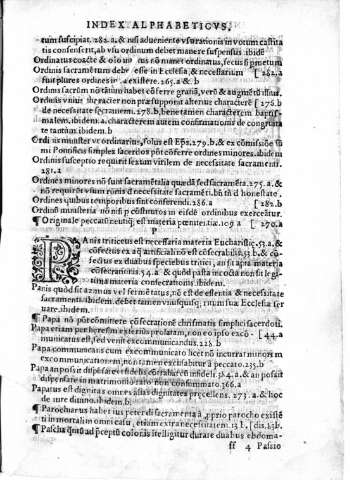 INDEX ALPHABETICVS.
rum suscipiat. 282.a. & nisi adueniente vsu rationis in votum castita
tis consenserit, ab vsu ordinum debet manere suspensus. ibidē
Ordinatus coacte & nō nī nus nō manet ordinatus, secus si metum
Ordinis sacramētum debet esse in Ecclesia, & necessarium [282.a
fuit plures ordines existere. 265.a. & b
Ordinis sacrum nō tātum habet cōferre gratiā, verū & augmētū illius.
Ordinis vnius character non præsupponit alterius characterē [276.b
de necessitate sacramenti. 278.b, bene tamen characterem baptis-
malem. ibidem. a. characterem autem confirmationis de congruita
te tantum. ibidem b
Ordinis minister vt ordinarius, solus est Eps. 279.b. & ex cōmissiōe sū
mi Pontificis simplex sacerdos pōt cōferre ordines minores. ibidem
Ordinis susceptio requirit sexum virilem de necessitate sacramenti.
281.a
Ordines minores nō sunt sacramētalia quædā sed sacramēta. 275.a. &
nō requirūt vsum rationis de necessitate sacramēti, bn̄ tn̄ de honestate.
Ordines quibus temporibus sint conferendi. 286.a [282.b
Ordinū ministeria nō nisi p̄ cōstitutos in eisdē ordinibus exercētur.
¶ Originale peccatum nō est materia pœnitētiæ. 109.a [270.a
P
PAnis triticeus est necessaria materia Eucharistiæ. 53.a. &
cōfectus ex aq̄ rosacea non est cōsecrabilis. 53.b. & cō-
fectus ex duabus speciebus tritici, an sit apta materia
cōsecrationis. 54.a. & quōd pasta incocta non sit legi
tima materia consecrationis. ibidem.
Panis quōd sit azimus vel fermētatus, nō est de essentia & necessitate
sacramenti. ibidem. debet tamen vnusquisq; ritum suæ Ecclesiæ ser
uare. ibidem.
¶ Papa nō pōt cōmittere cōsecrationē chrismatis simplici sacerdoti.
Papa etiam per hæresim externā prolatam, non eo ipso exco- [44.a
municatus est, sed venit excommunicandus. 226.b
Papa communicans cum excommunicato licet nō incurrat minorem
excommunicationem, non tamen excusabitur à peccato. 235.b
Papa an possit dispensare vt fidelis cōtrahat cū infideli. 364.a. & an possit
dispensare in matrimonio rato non consummato. 366.a
Papatus est dignitas omnes alias dignitates præcellens. 273.a. & hoc
de iure diuino. ibidem. b.
¶ Parochianus habet ius petendi sacramenta à proprio parocho existē
ti in mortali omni casu, etiam extra necessitatem. 13.b. [dis. 13.b.
¶ Pascha quātū ad præceptū cōfessionis ītelligitur durare duabus ebdoma-
ff 4 Passio